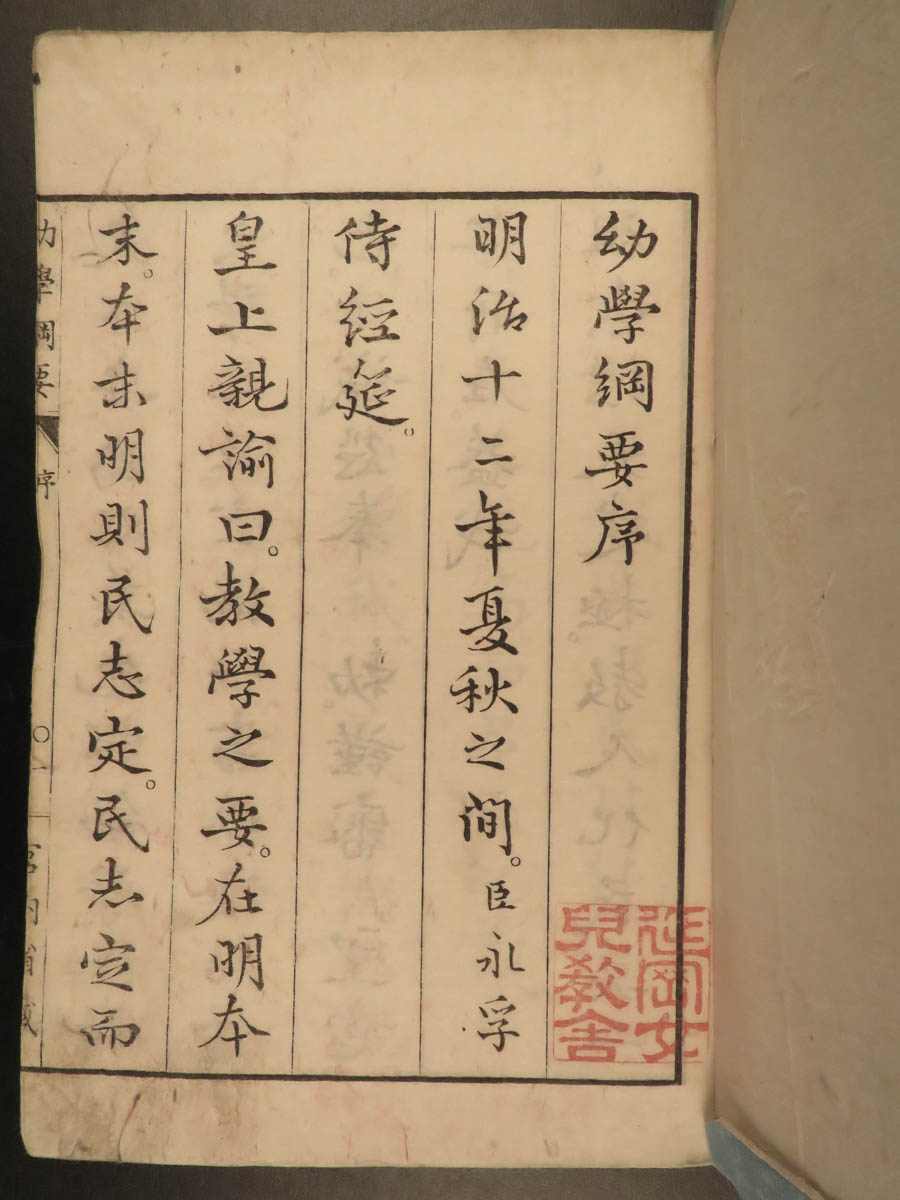 幼學綱要序
明治十二年夏秋之間。臣永孚
侍經筵。
皇上親諭曰。教學之要。在明本
末。本末明則民志定。民志定而
幼學綱要 序 〇一 宮內省藏
延岡女
兒教舎